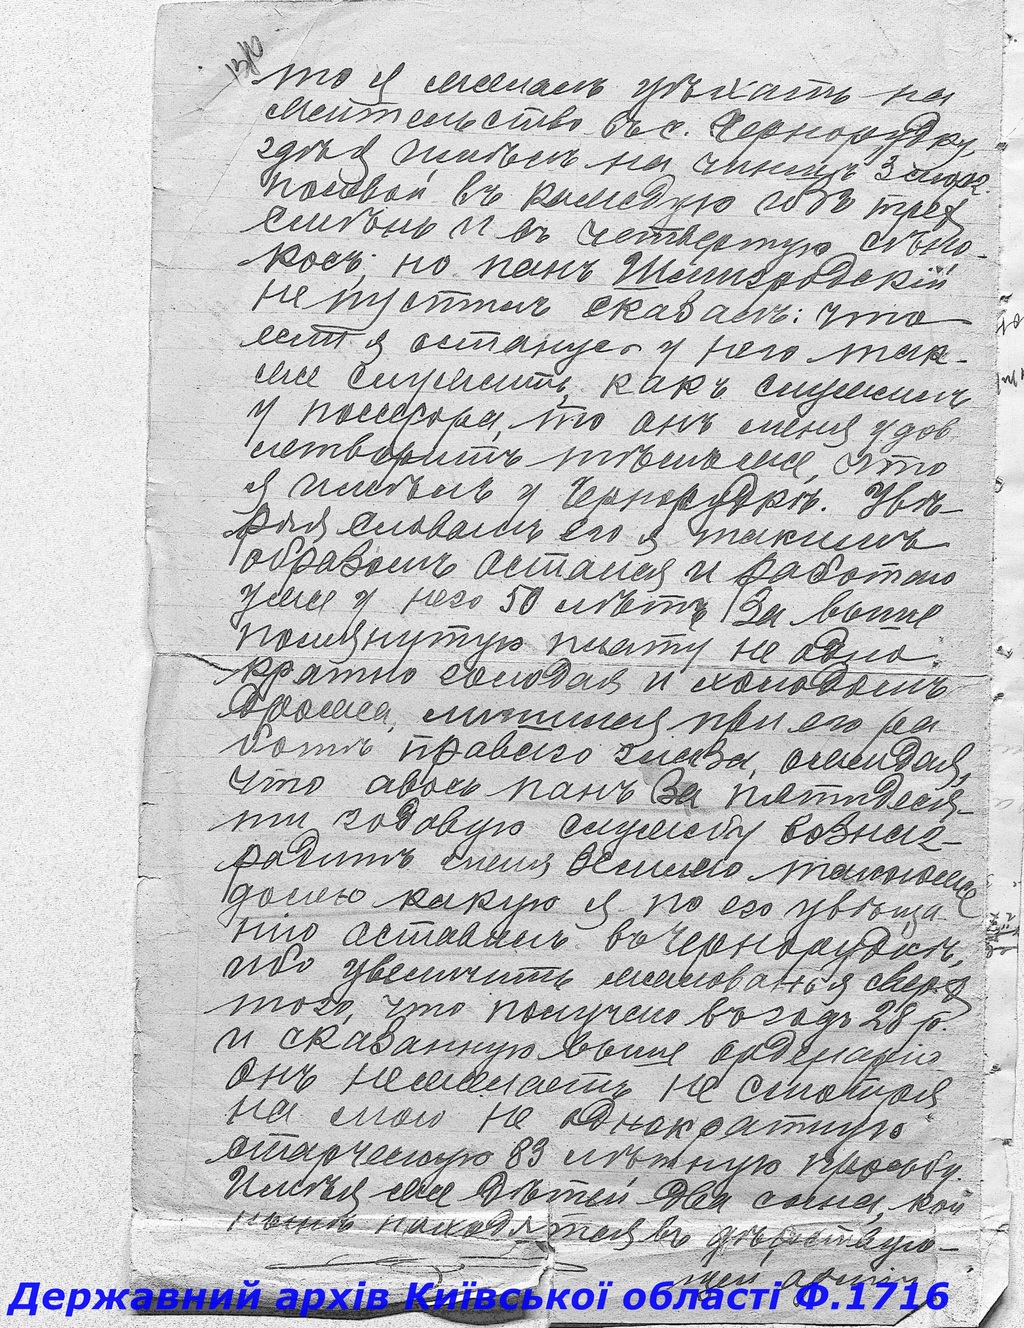 то я желалъ уѣхать на
жительство въ с. Чернорудку,
гдѣ я имѣлъ на чиншъ 3 морг.
полевой въ каждую изъ трех
смѣнъ и въ четвертую сѣно-
косъ; но панъ Шмигродскій
не пустилъ сказалъ: что
если я останусь у него так-
же служить, какъ служилъ
у посесора, то онъ меня удов
летворитъ тѣмъ же, что
я имѣлъ у Чернорудкѣ. Увѣ-
ряя словамъ его я такимъ
образомъ остался и работаю
уже у него 50 лѣтъ за выше
помянутую плату не одно
кратно голодая и холодомъ
дрожа, лишился при его ра
ботѣ праваго глаза, ожидая,
что авось панъ за пятидеся-
ти годовую службу вознаг-
радитъ меня землею таковою же
долею какую я по его увѣща
нію оставилъ въ Чернорудкѣ,
ибо увеличить жалованья сверх
того, что получаю въ годъ 28 р.
и сказанную выше ордепарію
онъ не желаетъ не смотря
на мою не однократную
старческую 83 лѣтнюю просьбу.
Имѣя же дѣтей два сына, кои
нынѣ находятся въ дѣйствую-
щей арміи
Державний архів Київської області Ф.1716